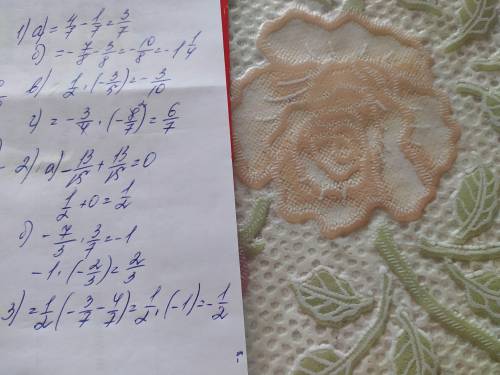 1) а) = 4/7 - 1/7 = 3/7
б) = - 7/8 - 3/8 = - 10/8 = -1 1/4
в) - 1/2 · (- 3/5) = - 3/10
г) = - 3/4 · (- 8/7) = 6/7
2) а) - 13/15 + 13/15 = 0
1/2 + 0 = 1/2
б) - 7/3 · 3/7 = -1
-1 · (- 2/3) = 2/3
3) = 1/2 (- 3/7 - 4/7) = 1/2 · (-1) = - 1/2